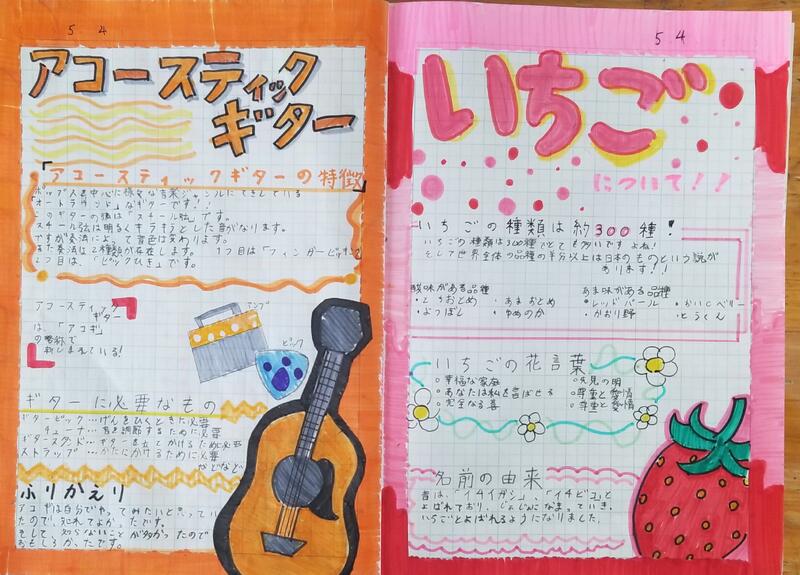 5 4
アコースティック
ギター
「アコースティックギターの特徴」
ポップスを中心に様々な音楽ジャンルにてきしている
「オールラウンド」なギターです!!
このギターの弦は「スチール弦」です。
スチール弦は明るくキラキラとした音がなります。
ですが奏法によって音色は変わります。
まず奏法は2種類が存在します。 1つ目は「フィンガーピッキング」
2つ目は、「ピックひき」です。
アコースティック
ギター
は、「アコギ」
の略称で
親しまれている!
アンプ
ピック
ギターに必要なもの
ギターピック…げんをひくときに必要
チューナー…音を調節するために必要
ギタースタンド…ギターを立てかけるために必要
ストラップ…かたにかけるために必要
などなど
ふりかえり
アコギは自分でやってみたいと思ってい
たので、知れてよかったです。
そして、知らないことが多かったので
おもしろかったです。
5 4
いちご
について!!
いちごの種類は約300種!
いちごの種類は300種ととても多いですよね!
そして世界全体の品種の半分以上は日本のものという説が
あります!!
酸味がある品種
・とちおとめ ・あまおとめ
・よつぼし ・ゆめのか
あま味がある品種
・レッドパール ・かいCベリー
・かおり野 ・とうくん
いちごの花言葉
○幸福な家庭 ○先見の明
○あなたは私を喜ばせる ○尊重と愛情
○完全なる善 ○尊重と愛情
名前の由来
昔は、「イチイガシ」、「イチビコ」と
よばれており、じょじょになまっていき、
いちごとよばれるようになりました。